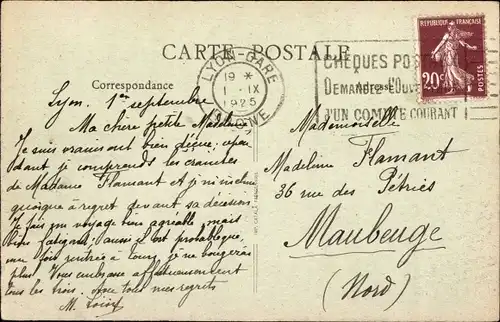 CARTE - POSTALE
Correspondance
Adresse
LYON-GARE
19 *
1 - IX
1925
RHONE
CHÈQUES POST
DEMANDE L'OUV
D'UN COMPTE COURANT
RÉPUBLIQUE FRANÇAISE
20c
POSTES
Lyon. 1er septembre
Ma chère petite Madeleine
Je suis vraiment bien déçue, cepen
dant je comprends les craintes
de Madame Flamant et je m'incline
quoique à regret devant sa décision
Je fais un voyage bien agréable, mais
bien fatigant; aussi il est probable que,
une fois rentrée à Tours, je ne bougerai
plus. Vous embrasse affectueusement
tous les trois. Avec tous mes regrets
M.
Mademoiselle
Madeleine Flamant
36 rue des
Maubeuge
(Nord)